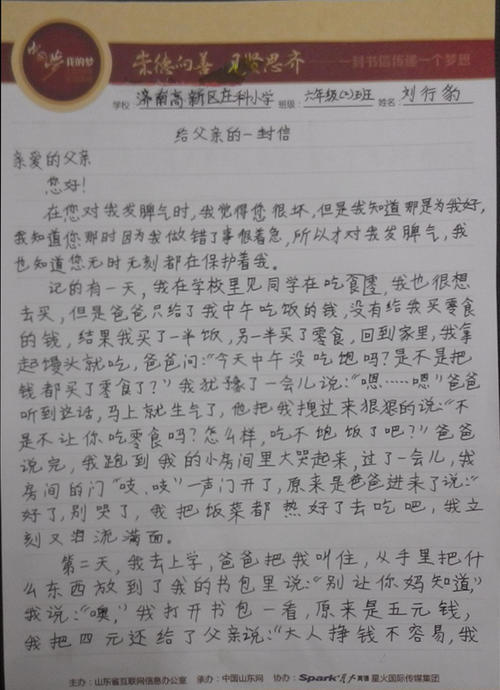 中国梦 我的梦
崇德向善 见贤思齐 一封书信传递一个梦想
学校 济南高新区庄科小学 班级: 六年级(2)班 姓名: 刘行豹
给父亲的一封信
亲爱的父亲
您好!
在您对我发脾气时,我觉得您很坏,但是我知道那是为我好,
我知道您那时因为我做错了事很着急,所以才对我发脾气,我
也知道您无时无刻都在保护着我。
记的有一天,我在学校里见同学在吃食零,我也很想
去买,但是爸爸只给了我中午吃饭的钱,没有给我买零食
的钱,结果我买了一半饭,另一半买了零食,回到家里,我拿
起馒头就吃,爸爸问:“今天中午没吃饱吗?是不是把
钱都买了零食了?”我犹豫了一会儿说:“嗯……嗯”爸爸
听到这话,马上就生气了,他把我拽过来狠狠的说:“不
是不让你吃零食吗?怎么样,吃不饱饭了吧?”爸爸
说完,我跑到我的小房间里大哭起来,过了一会儿,我
房间的门“吱、吱”一声门开了,原来是爸爸进来了说:“
好了,别哭了,我把饭菜都热好了去吃吧,我立
刻又泪流满面。
第二天,我去上学,爸爸把我叫住,从手里把什
么东西放到了我的书包里说:“别让你妈知道,”
我说:“噢,”我打开书包一看,原来是五元钱,
我把四元还给了父亲说:“大人挣钱不容易,我
主办:山东省互联网信息办公室 承办:中国山东网 协办:Spark星火英语 星火国际传媒集团